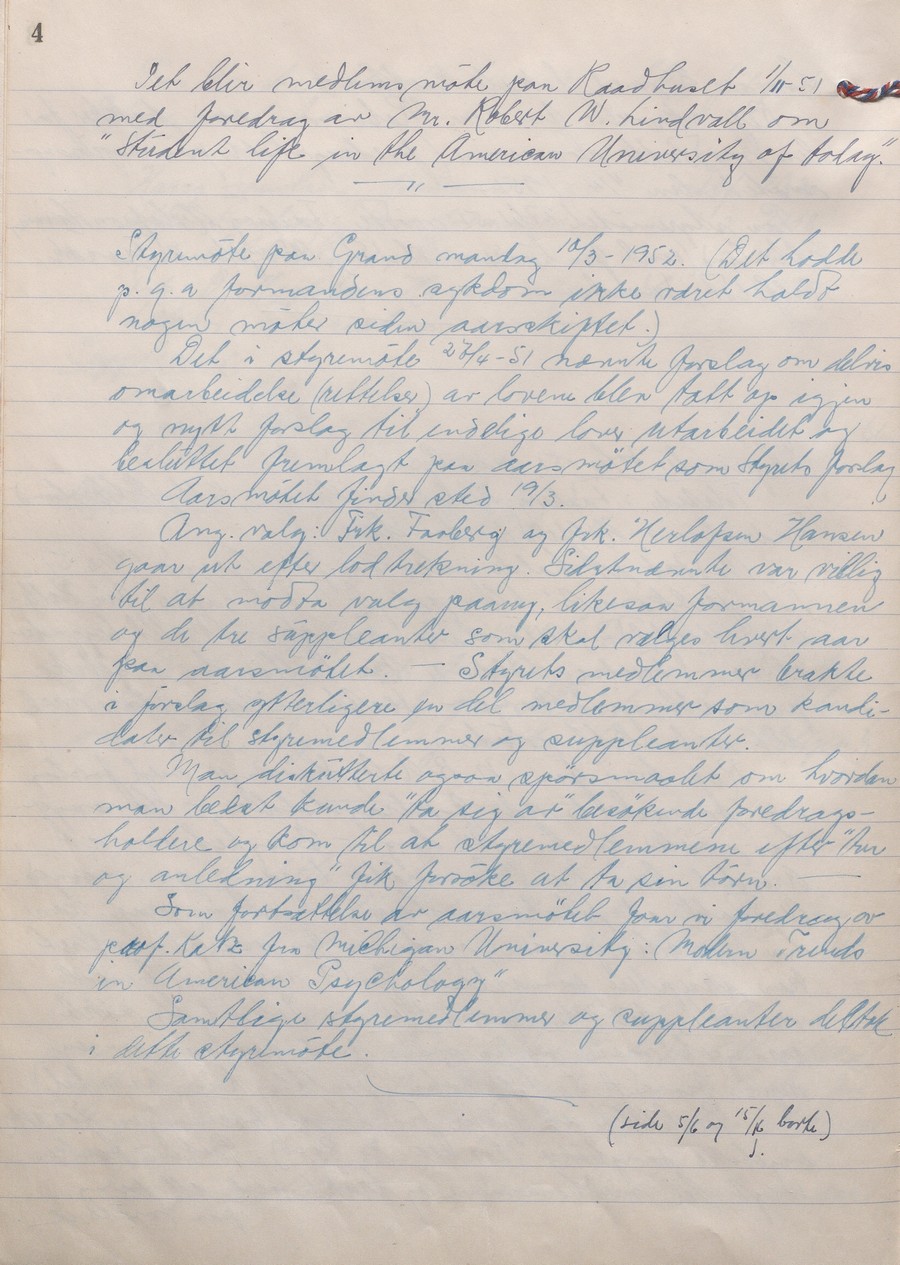 4
Det blir medlemsmöte paa Raadhuset 1/11-51
med foredrag av Mr. Robert W. Lindvall om
"Student life in the American University of today."
— " —
Styremöte paa Grand mandag 10/3-1952. (Det hadde
p.g.a formandens sykdom ikke været holdt
nogen möter siden aarsskiftet.)
Det i styremöte 27/4-51 nævnte forslag om delvis
omarbeidelse (rettelser) av lovene blev tatt op igjen
og nytt forslag til endelige lover utarbeidet og
besluttet fremlagt paa aarsmötet som Styrets forslag
Aarsmötet finder sted 19/3.
Ang. valg: Frk. Faaberg og frk. Herlofsen Hansen
gaar ut efter lodtrekning. Sidstnævnte var villig
til at motta valg paany, likesaa formannen
og de tre suppleanter som skal velges hvert aar
paa aarsmötet. — Styrets medlemmer brakte
i forslag ytterligere en del medlemmer som kandi-
dater til styremedlemmer og suppleanter.
Man diskuterte ogsaa spörsmaalet om hvordan
man bedst kunde "ta sig av" besökende foredrags-
holdere og kom til at styremedlemmene efter "tur
og anledning" fik forsöke at ta sin törn. —
Som fortsættelse av aarsmötet faar vi foredrag av
prof. Katz fra Michigan University: Modern Trends
in American Psychology"
Samtlige styremedlemmer og suppleanter deltok
i dette styremöte.
(side 5/6 og 15/16 borte)